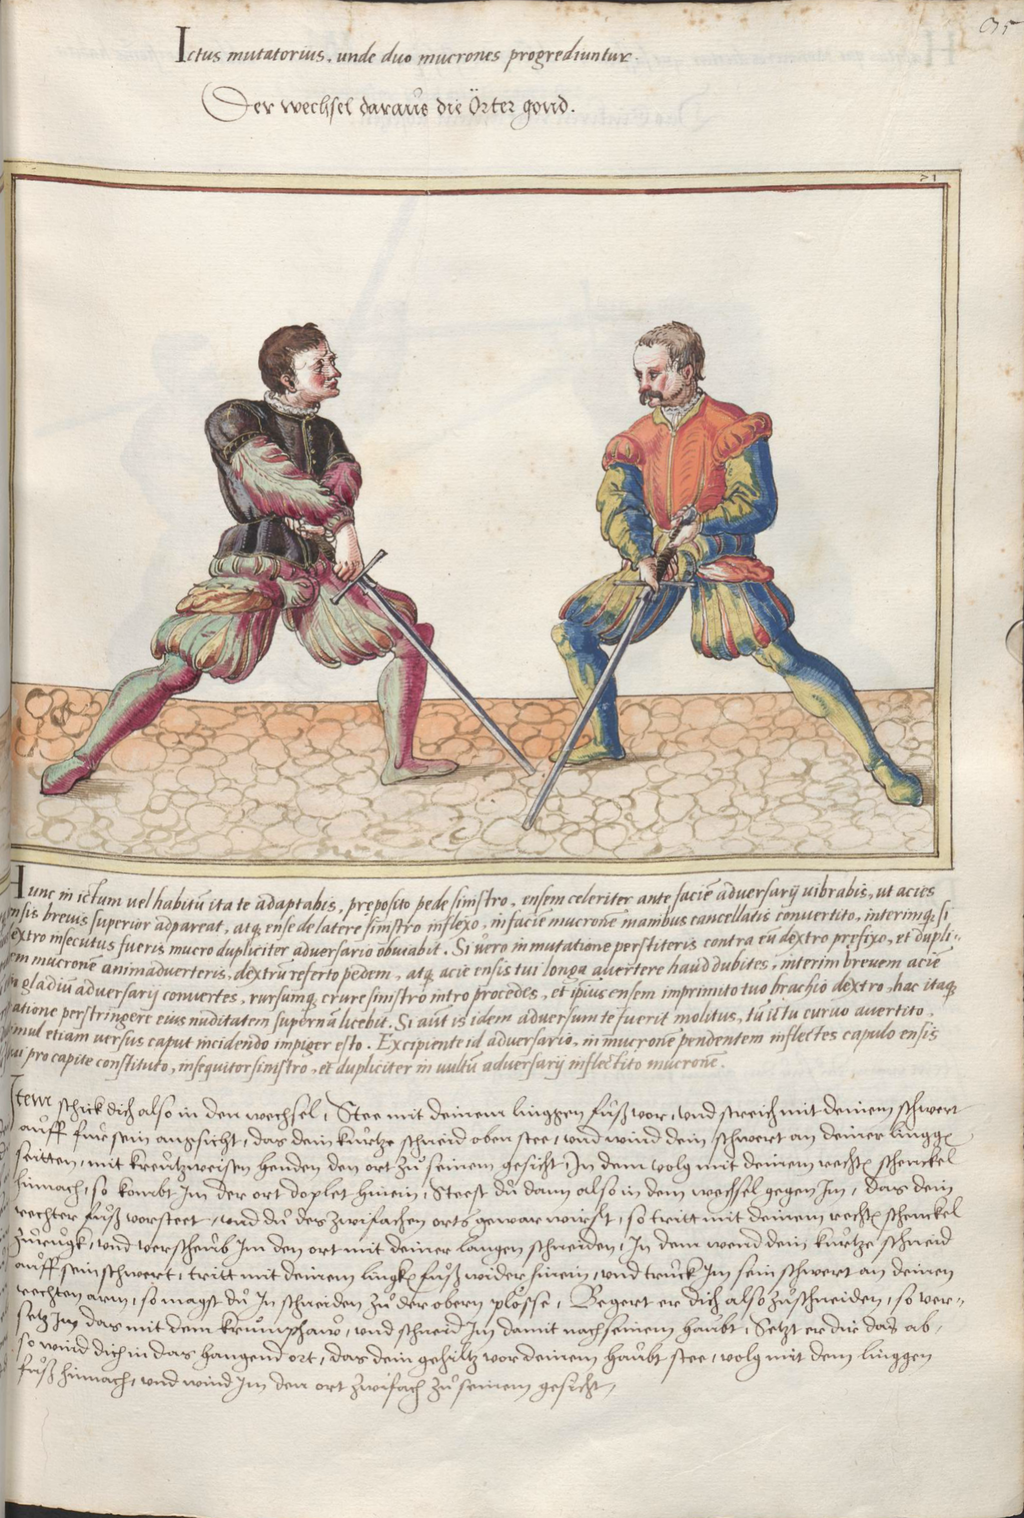 95
Ictus mutatorius, unde duo mucrones progrediuntur.
Der wechsel daraus die Örter gond.
71
Hunc in ictum vel habitū ita te adaptabis, preposito pede sinistro, ensem celeriter ante faciē adversarij vibrabis, ut acies
ensis brevis superior adpareat, atq, ense de latere sinistro inflexo, in faciē mucronē manibus cancellatis convertito, interimq, si
dextro insecutus fueris mucro dupliciter adversario obviabit. Si vero in mutatione perstiteris contra eū dextro prefixo, et dupli-
cem mucronē animadverteris, dextrū referto pedem, atq, acie ensis tui longa avertere haud dubites, interim brevem aciē
gladiū adversarij convertes, rursumq, crure sinistro intro procedes, et ipsius ensem imprimito tuo brachio dextro, hac itaq,
ratione perstringere eius nuditatem supernā licebit. Si aūt is idem adversum te fuerit molitus, tū ictu curvo avertito,
simul etiam versus caput incidendo impiger esto. Excipiente id adversario, in mucronē pendentem inflectes capulo ensis
tui pro capite constituto, insequitor sinistro, et dupliciter in vultū adversarij inflectito mucronē.
Item schick dich also in den wechsel, Stee mit deinem linggen fuß vor, und streich mit deinem schwert
auff fur sein angesicht, das dein kurtze schneid oben stee, und wind dein schwert an deiner lingg
seitten, mit kreutzweisen henden den ort zu seinem gesicht, In dem volg mit deinem recht schenckel
hinnach, so kombt Im der ort doplet hinein, Steest du dann also in dem wechsel gegen Im, das dein
rechter fuß vorsteet, und du des zwifachen orts gewar wirst, so tritt mit deinem recht schenckel
zurugk, und verscheub Im den ort mit deiner langen schneiden, In dem wend dein kurtze schneid
auff sein schwert, tritt mit deinem lingk fuß wider hinein, und truck Im sein schwert an deinen
rechten arm, so magst du In schneiden zu der obern plösse, Begert er dich also zuschneiden, so ver-
setz Im das mit dem krumphaw, und schneid Im damit nach seinem haubt, Setzt er dir das ab,
so wind dich in das hangend ort, das dein gehiltz vor deinem haubt stee, volg mit dem linggen
fuß hinnach, und wind Im den ort zwifach zu seinem gesicht,